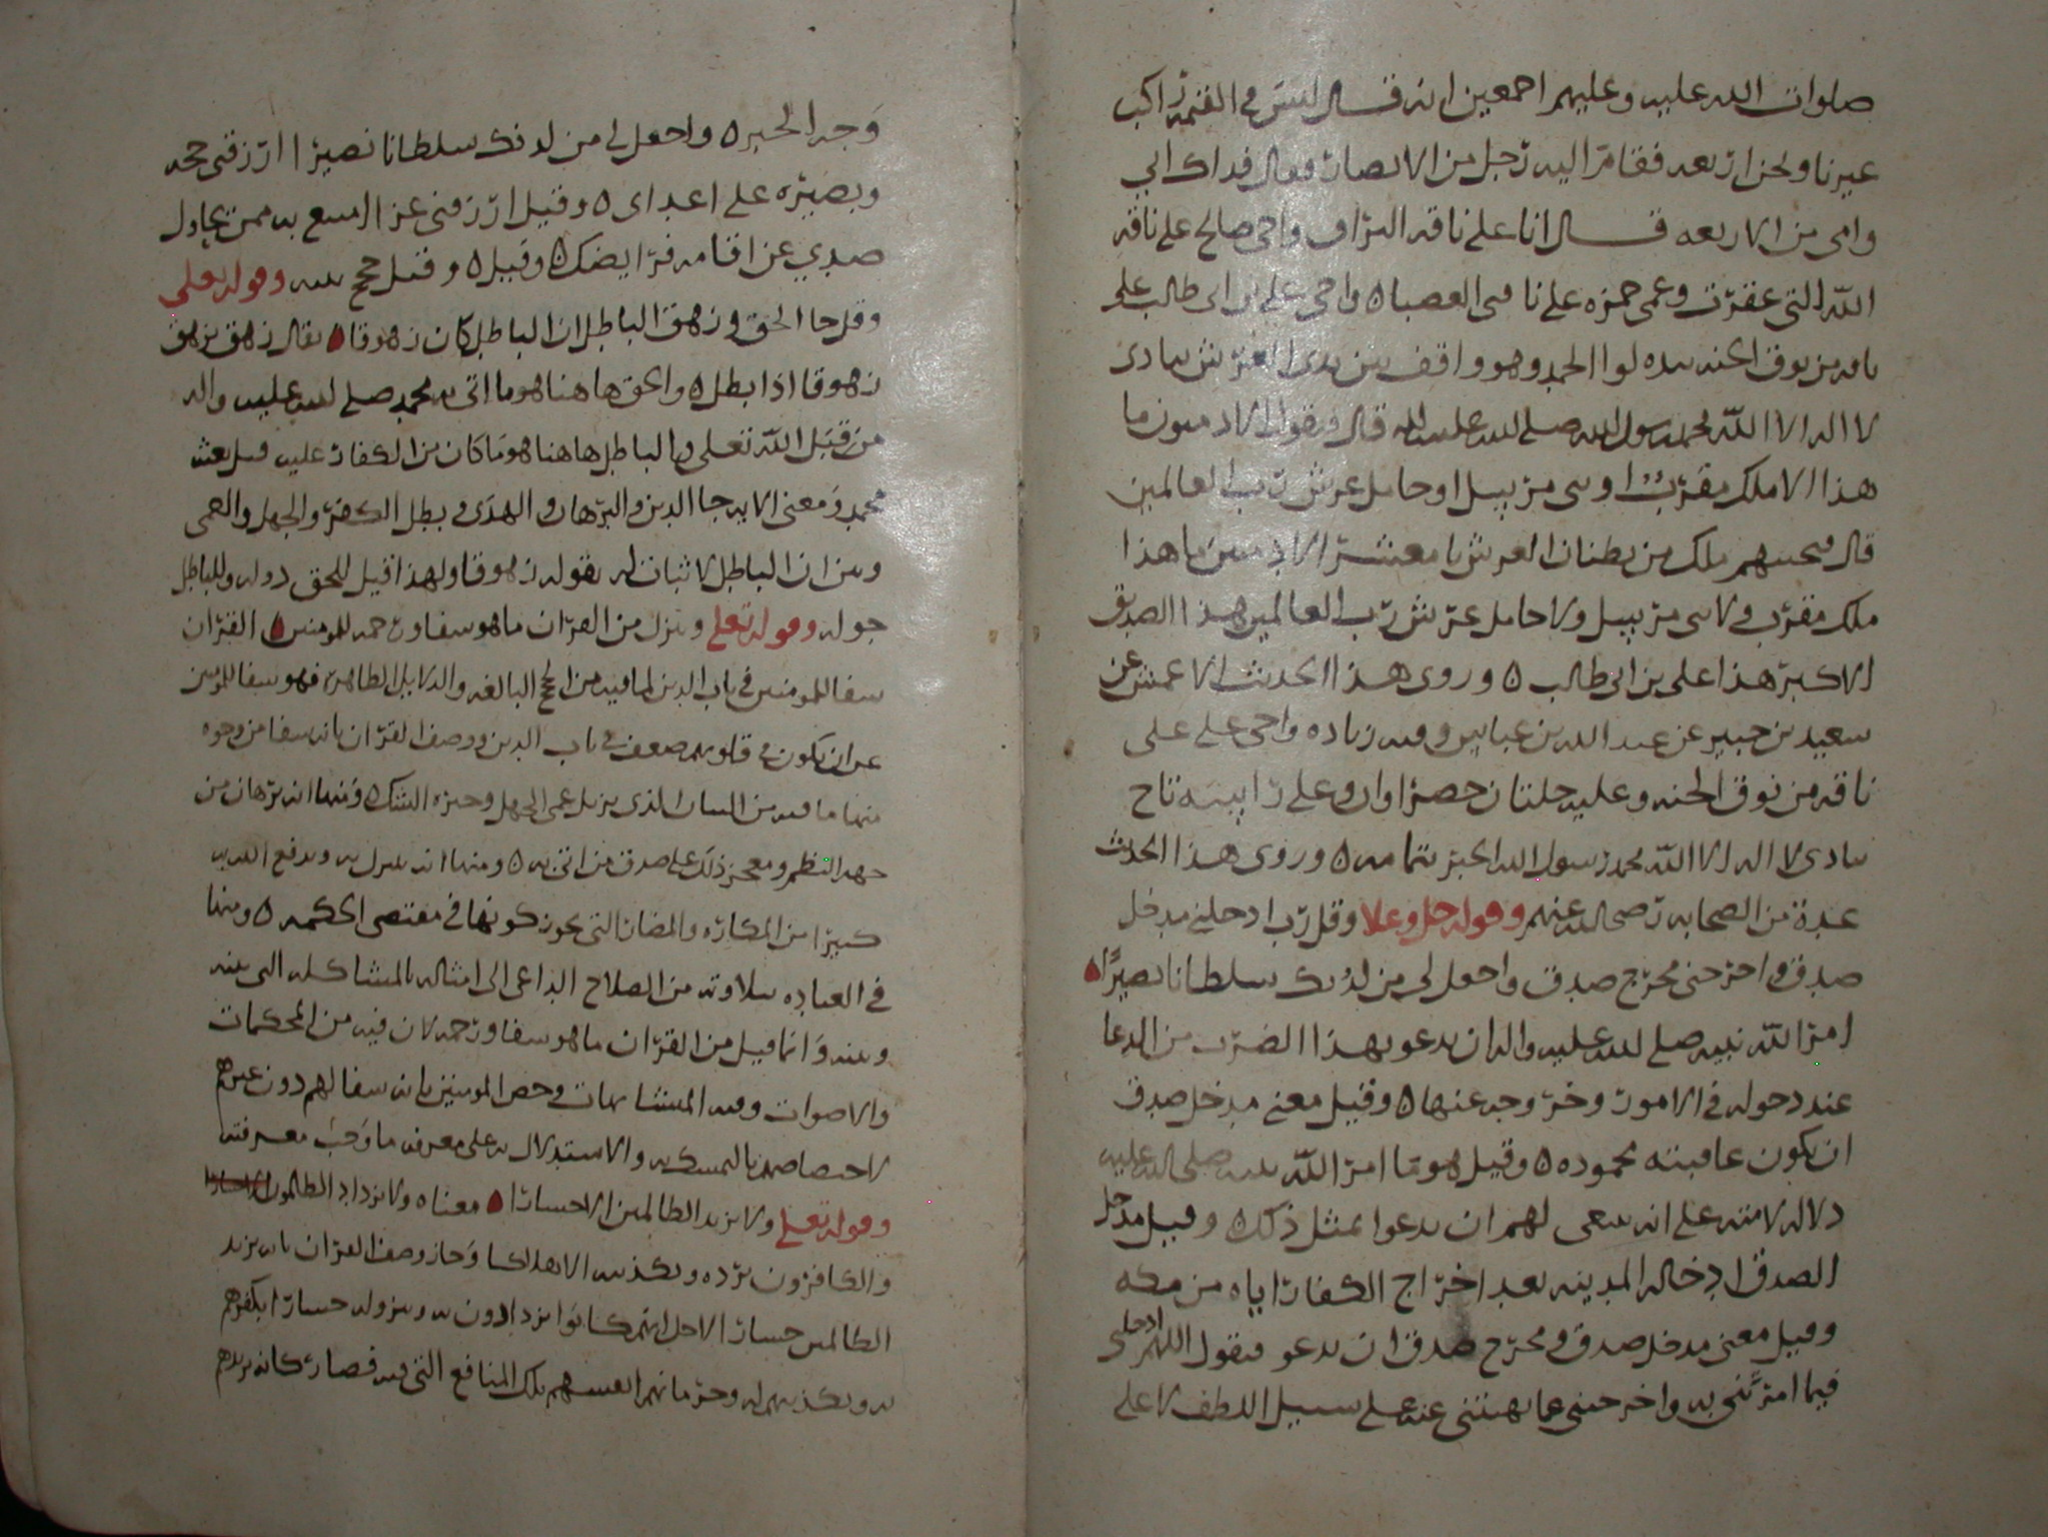 صلوات الله عليه وعليهم اجمعين انه قال ليس في القيمة راكب
غيرنا ونحن اربعه فقام اليه رجل من الانصار فقال فداك ابي
وامي من الاربعه قال انا على ناقه البراق واخي صالح على ناقه
الله التي عقرت وعمي حمزه على ناقتي العضبا واخي علي بن ابي طالب على
ناقه من نوق الجنه بيده لوا الحمد وهو واقف بين يدي العرش ينادي
لا اله الا الله محمد رسول الله صلى الله عليه واله قال فيقول الادميون ما
هذا الا ملك مقرب او نبي مرسل او حامل عرش رب العالمين
قال فيجيبهم ملك من بطنان العرش يا معشر الادميين ما هذا
ملك مقرب ولا نبي مرسل ولا حامل عرش رب العالمين هذا الصديق
الاكبر هذا علي بن ابي طالب ه وروى هذا الحديث الاعمش عن
سعيد بن جبير عن عبد الله بن عباس وفيه زياده واخي علي على
ناقه من نوق الجنه وعليه حلتان خضراوان وعلى راسه تاج
ينادي لا اله الا الله محمد رسول الله الخبر بتمامه ه وروى هذا الحديث
عدة من الصحابه رضي الله عنهم وقوله جل وعلا وقل رب ادخلني مدخل
صدق واخرجني مخرج صدق واجعل لي من لدنك سلطانا نصيرًا ه
امر الله نبيه صلى الله عليه واله ان يدعو بهذا الضرب من الدعا
عند دخوله في الامور وخروجه عنها ه وقيل معنى مدخل صدق
ان يكون عاقبته محموده ه وقيل هو ما امر الله نبيه صلى الله عليه
دلاله لامته على انه ينبغي لهم ان يدعوا بمثل ذلك ه وقيل مدخل
الصدق ادخاله المدينه بعد اخراج الكفار اياه من مكه
وقيل معنى مدخل صدق ومخرج صدق ان يدعو فيقول اللهم ادخلني
فيما امرتني به واخرجني عما نهيتني عنه على سبيل اللطف لا على
وجه الخبر ه واجعل لي من لدنك سلطانا نصيرا ارزقني حجه
وبصيره على اعداي ه وقيل ارزقني عزا امتنع به ممن يحاول
صدي عن اقامه فرايضك ه وقيل ه وقيل حجج بينه وقوله تعلى
وقل جا الحق وزهق الباطل ان الباطل كان زهوقا ه يقال زهق يزهق
زهوقا اذا بطل ه والحق هاهنا هو ما اتى به محمد صلى الله عليه واله
من قبل الله تعلى والباطل هاهنا هو ما كان من الكفار عليه قبل بعث
محمد ومعنى الايه جا الدين والبرهان والهدى وبطل الكفر والجهل والعمى
وبين ان الباطل لا ثبات له بقوله زهوقا ولهذا قيل للحق دوله وللباطل
جوله وقوله تعلى وننزل من القران ما هو شفا ورحمه للمومنين ه القران
شفا للمومنين في باب الدين لما فيه من الحجج البالغه والدلايل الظاهره فهو شفا للمومنين
عن ان يكون في قلوبهم ضعف في باب الدين ووصف القران بانه شفا من وجوه
منها ما فيه من البيان الذي يزيل عمى الجهل وحيره الشك ه ومنها انه برهان من
جهه النظم ومعجز ذلك على صدق من اتى به ه ومنها انه يتبرك به ويدفع الله به
كثيرا من المكاره والمضار التي يجوز كونها في مقتضى الحكمه ه ومنها
في العباده بتلاوته من الصلاح الداعي الى امثاله بالمشاكله التي بينه
وبينه وانما قيل من القران ما هو شفا ورحمه لان فيه من المحكمات
والاصوات وفيه المتشابهات وخص المومنين بانه شفا لهم دون غيرهم
لاختصاصهم بالتمسك به والاستدلال به على معرفه ما وجب معرفته
وقوله تعلى ولا يزيد الظالمين الا خسارا ه معناه ولا يزداد الظالمون
والكافرون برده وتكذيبه الا هلاكا وجاز وصف القران بانه يزيد
الظالمين خسارا لاجل انهم كانوا يزدادون به وبنزوله خسارا بكفرهم
به وتكذيبهم له وحرمانهم انفسهم تلك المنافع التي فيه فصار كانه يزيدهم